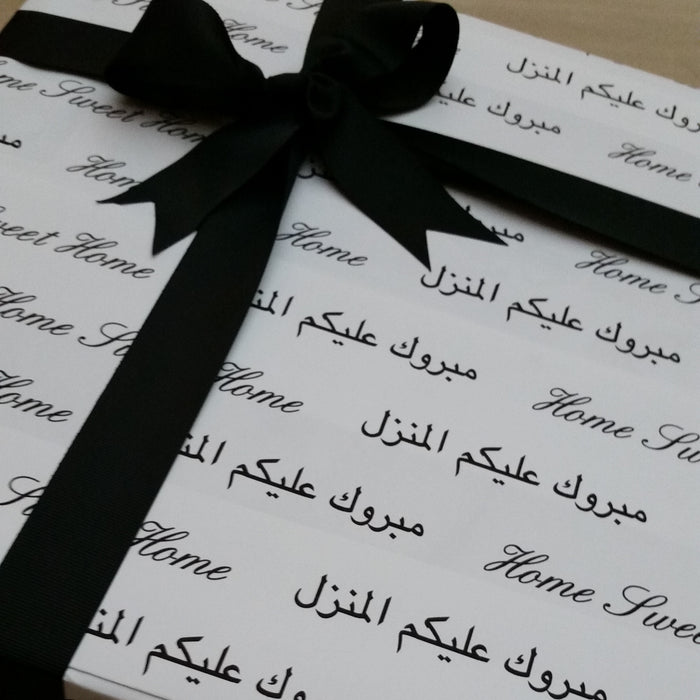 Home
مبروك عليكم المنزل
Home Sweet Home
مبروك عليكم
Home
Home
Sweet Home
Home
Home
مبروك عليكم المنزل
Home
مبروك عليكم
Home
Home
مبروك عليكم المنزل
Home
مبروك عليكم
Home
Home
مبروك عليكم المنزل
عليكم